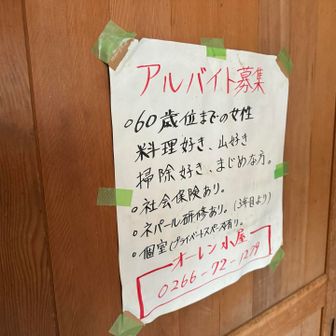 アルバイト募集
○60歳位までの女性
料理好き、山好き
掃除好き、まじめな方。
○社会保険あり。
○ネパール研修あり。(3年目より)
○個室(プライベートスペース有り。
オーレン小屋
0266-72-1279